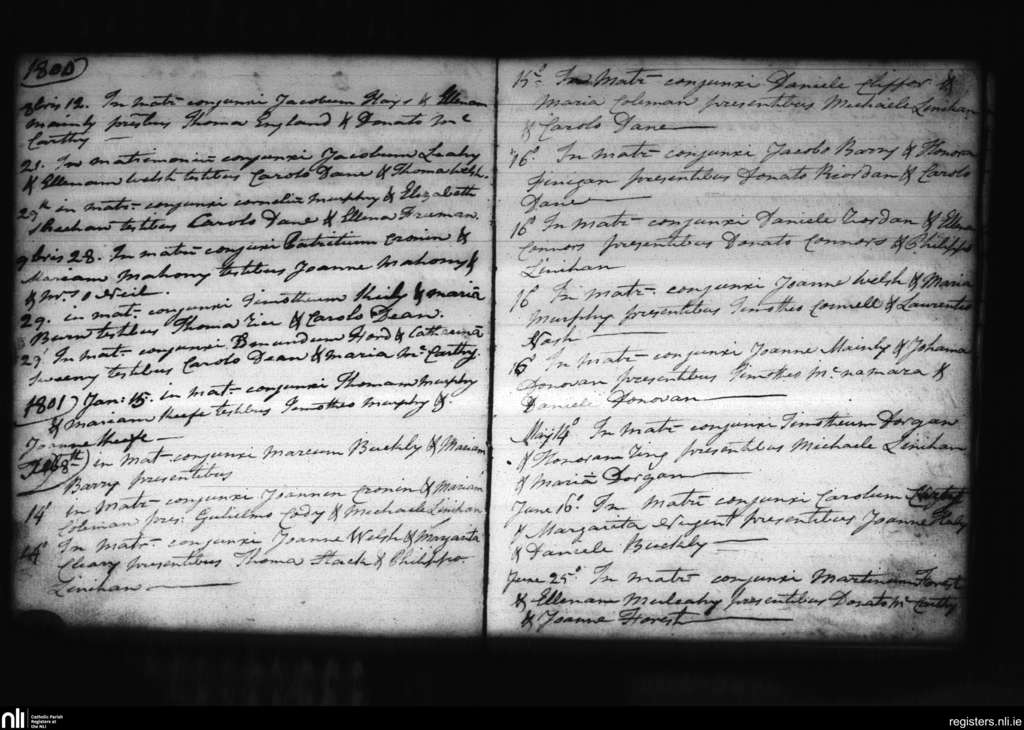 1800
8bris 12. In matr conjunxi Jacobum Hays & Ellenam
Mainly Thoma England & Donato Mc
Carthy
21. In matrimonium conjunxi Jacobum Leahy
& Ellenam Welsh testibus Carolo Dane & Thoma Welsh.
27th in mat: conjunxi Cornelium Murphy & Elizabeth
Sheehan testibus Carolo Dane & Ellena Freeman.
9bris 28. In matr conjuxi Patritium Cronin &
Mariam Mahony testibus Joanne Mahony &
& Neil.
29. in mat. conjunxi Timotheum & Maria
testibus Thoma & Carolo Dean.
29 In mat. conjunxi & Catherina
Sweeny testibus Carolo Dean & Maria Mc Carthy.
1801) Jan: 15. in mat. conjunxi Thomam Murphy
& Mariam Keefe testibus Timotheo Murphy &
Joanne Keefe
8th) in mat conjunxi Marcum Buckly & Mariam
Barry presentibus
14° in matr conjunxi Joannem Cronin & Mariam
Coleman pres: Gulielmo Cody & Michaele Linihan
14° In mat. conjunxi Joanne Welsh & Margarita
Cleary presentibus Thoma Stack & Philippo
Linihan
15° In Matr conjunxi Daniele Cliffor &
Maria Coleman presentibus Michaele Linihan
& Carolo Dane
16° In matr conjunxi Jacobo Barry & Honora
Finigan presentibus Donato Riordan & Carolo
Dane
16° In matr conjunxi Daniele & Ellena
Connors presentibus Donato Connors & Philippo
Linihan
16° In matr conjunxi Joanne Welsh & Maria
Murphy presentibus Timotheo Connell & Laurentio
Hash
16° In matr conjunxi Joanne Mainly & Johanna
Donovan presentibus Timotheo Mc namara &
Daniele Donovan
May 14° In Matr conjunxi Timotheum Dorgan
& Honoram presentibus Michaele Linihan
& Maria Dorgan
June 16° In matr conjunxi Carolum
& Margarita Nugent presentibus Joanne
& Daniele Buckly
June 25° In matr conjunxi Martinum Forest
& Ellenam Mulcahy presentibus Donato Mc Carthy
& Joanne Forest
nli Catholic Parish
Registers at
the NLI
registers.nli.ie